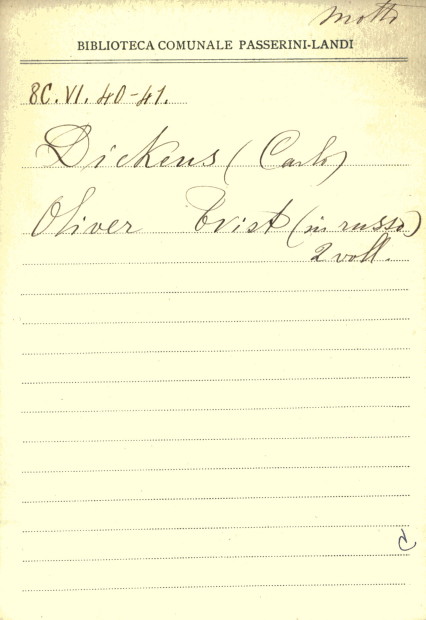 Motti
BIBLIOTECA COMUNALE PASSERINI-LANDI
8C. VI. 40-41.
Dickens (Carlo)
Oliver Tvist (in russo)
2 voll.
C